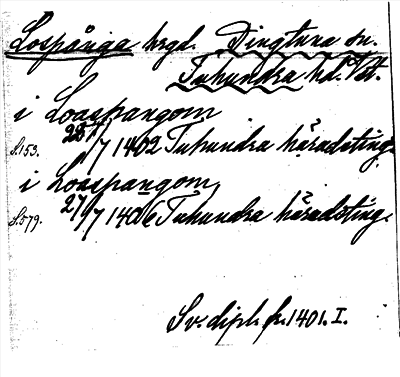 Lospånga hrgd. Dingtuna sn.
Tuhundra hd. Vstl.
i Loaspangom
S. 153. 28/7 1402 Tuhundra häradsting.
i Loaspangom
S. 579. 27/7 1406 Tuhundra häradsting.
Sv. dipl. fr. 1401. I.